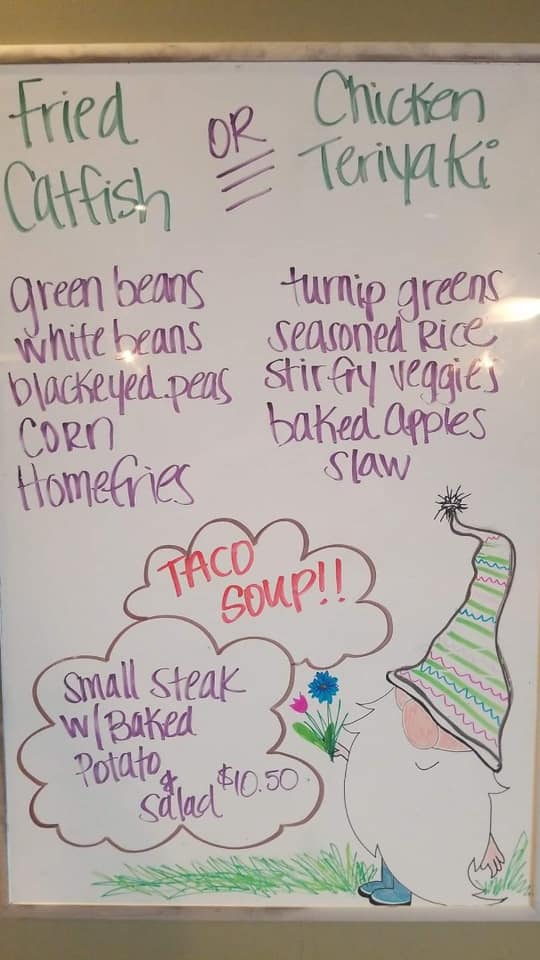 Fried
Catfish
OR
Chicken
Teriyaki
green beans
white beans
blackeyed peas
CORN
Homefries
turnip greens
seasoned Rice
stir fry veggies
baked apples
slaw
TACO
SOUP!!
Small Steak
w/ Baked
Potato
& salad $10.50